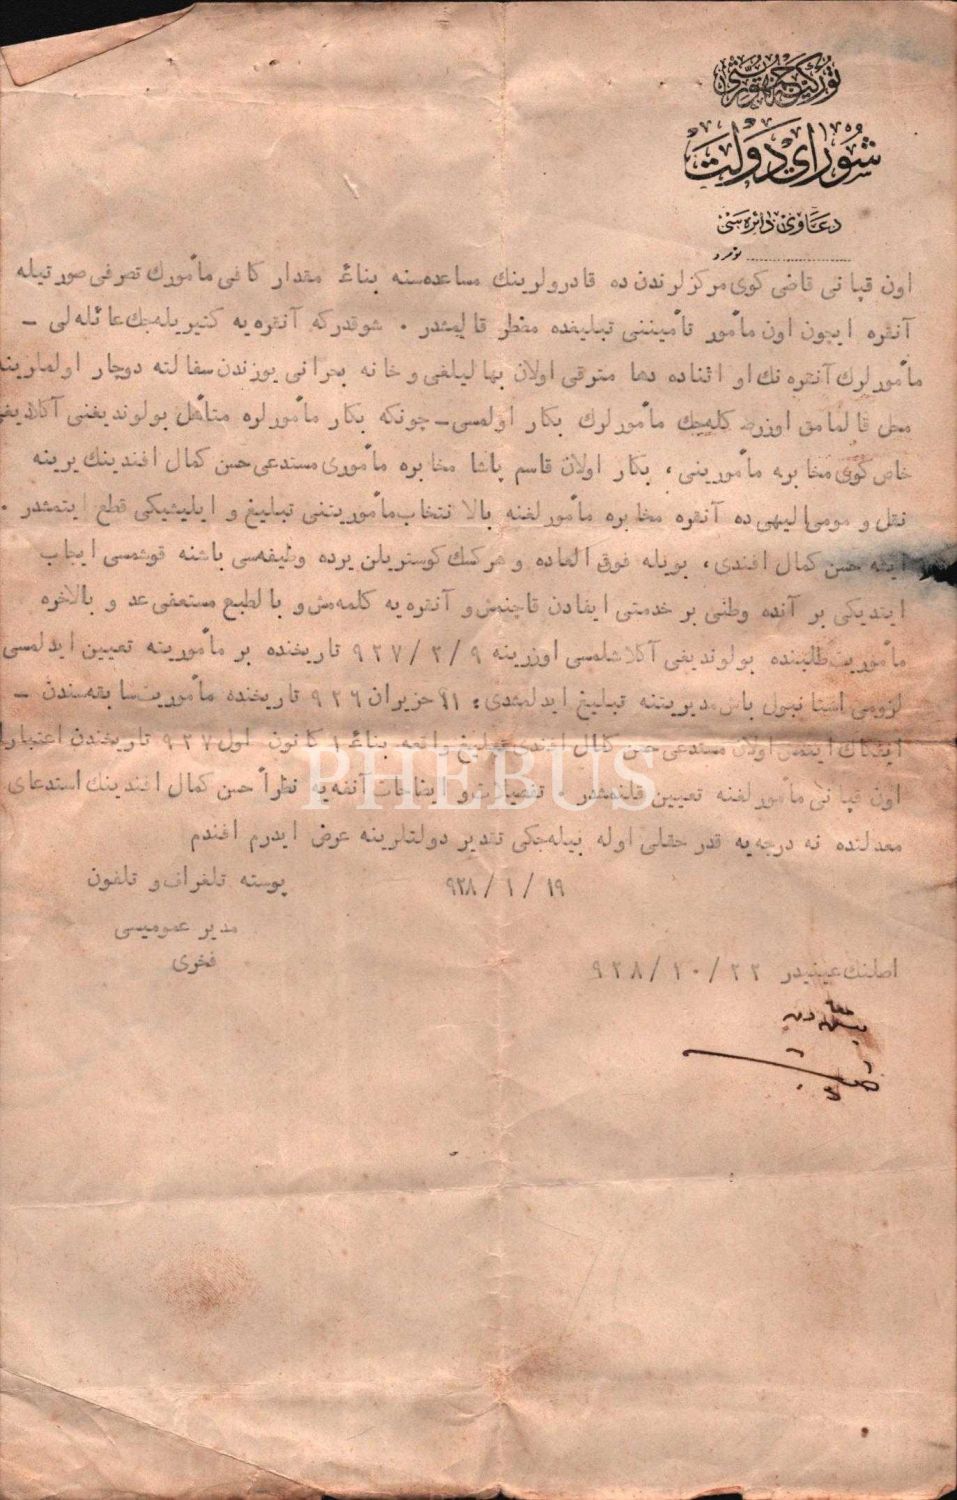 توركيه جمهوريتى
شوراى دولت
دعاوى دائره سى
نومرو
اون قپانى قاضى كوى مركزلرندن ده قادرولرينك مساعده سنه بناءً مقدار كافى مأمورك تصرفى صورتيله
آنقره ايچون اون مأمور تأمينى تبليغده مضطر قالمشدر . شوقدركه آنقره يه كتيريله جك عائله لى ـ
مأمورلرك آنقره نك او اثناده دها مترقى اولان بهاليلغى و خانه بحرانى يوزندن سفالته دوچار اولمارينه
محل قالمامق اوزره كله جك مأمورلرك بكار اولمسى ـ چونكه بكار مأمورلره متأهل بولونديغنى آكلاديغى
خاص كوى مخابره مأمورينى ، بكار اولان قاسم پاشا مخابره مأمورى مستدعى حسن كمال افندينك يرينه
نقل و مومى اليهى ده آنقره مخابره مأمورلغنه بالانتخاب مأموريتنى تبليغ و ايليشيكى قطع ايتمشدر .
ايشه حسن كمال افندى ، بويله فوق العاده و هركسك كوستريلن يرده وظيفه سى باشنه قوشمسى ايجاب
ايتديكى بر آنده وطنى بر خدمتى ايفادن قاچنمش و آنقره يه كلمه مش و بالطبع مستعفى عد و بالاخره
مأموريت طلبنده بولونديغى آكلاشلمسى اوزرينه ٩ / ٢ / ٩٢٧ تاريخنده بر مأموريته تعيين ايدلمسى
لزومى استانبول باش مديريتنه تبليغ ايدلمشدى : ١٩ حزيران ٩٢٦ تاريخنده مأموريت سابقه سندن ـ
انفكاك ايتمش اولان مستدعى حسن كمال افندى تبليغ واقعه بناءً ١ كانون اول ٩٢٧ تاريخندن اعتباراً
اون قپانى مأمورلغنه تعيين قلنمشدر . تفصيلات و ايضاحات آنفه يه نظراً حسن كمال افندينك استدعاى
معدلنده نه درجه يه قدر حقلى اوله بيله جكى تقدير دولتلرينه عرض ايدرم افندم
١٩ / ١ / ٩٢٨ پوسته تلغراف و تلفون
مدير عموميسى
فخرى
اصلنك عينيدر ٢٢ / ١٠ / ٩٢٨
PHEBUS